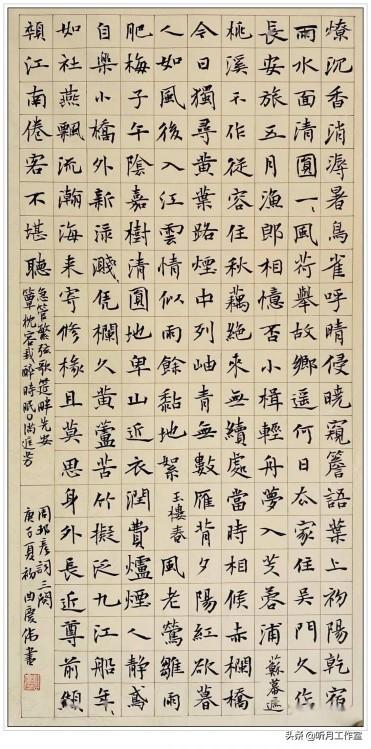 燎沉香消溽暑鳥雀呼晴侵曉窺簷語葉上初陽乾宿
雨水面清圓一、風荷舉故鄉遥何日去家住吳門久作
長安旅五月漁郎相憶否小楫輕舟夢入芙蓉浦 蘇幕遮
桃溪不作從容住秋藕絶來無續處當時相候赤欄橋
今日獨尋黄葉路煙中列岫青無數雁背夕陽紅欲暮
人如風後入江雲情似雨餘黏地絮 玉樓春 風老鶯雛雨
肥梅子午陰嘉樹清圓地卑山近衣潤費爐煙人静鳶
自樂小橋外新渌濺凭欄久黄蘆苦竹擬泛九江船年
如社燕飄流瀚海来寄修椽且莫思身外長近尊前顦
顇江南倦客不堪聽
急管繁弦歌筵畔先安
簟枕容我醉時眠 满庭芳
周邦彦詞三闋
庚子夏初曲慶偉書
头条 @听月工作室